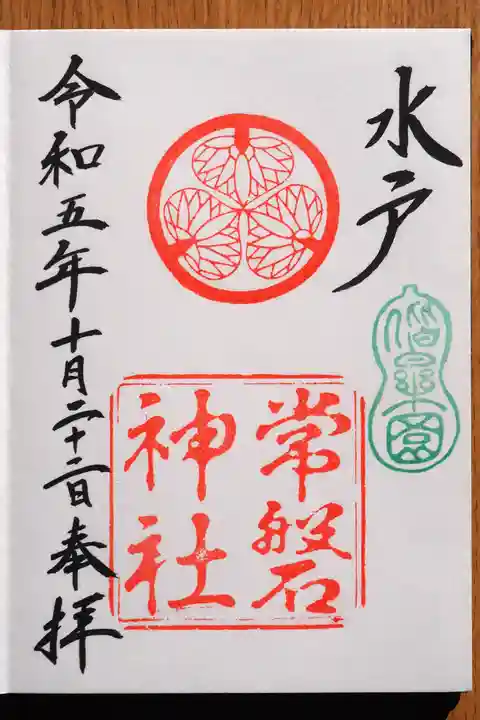 水戸
偕樂園
常磐
神社
令和五年十月二十二日奉拝